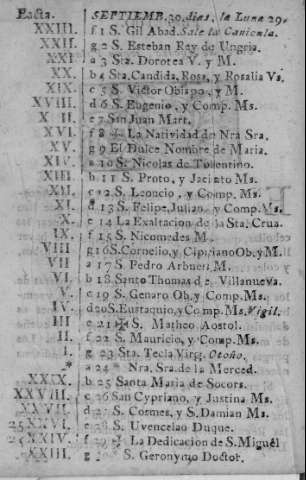 Eacta. SEPTIEMB. 30. dias, la Luna 29.
XXIII. f 1 S. Gil Abad. Sale la Canicula.
XXII. g 2 S. Esteban Rey de Ungria.
XXI. a 3 Sta. Dorotea V. y M.
XX. b 4 Sta. Candida, Rosa, y Rosalia Vs.
XIX. c 5 S. Victor Obispo, y M.
XVIII. d 6 S. Eugenio, y Comp. Ms.
XVII. e 7 San Juan Mart.
XVI. f 8 ✠ La Natividad de Nra Sra.
XV. g 9 El Dulce Nombre de Maria.
XIV. a 10 S. Nicolas de Tolentino.
XIII. b 11 S. Proto, y Jacinto Ms.
XII. c 12 S. Leoncio, y Comp. Ms.
XI. d 13 S. Felipe, Julian, y Comp. Ms.
X. e 14 La Exaltacion de la Sta. Crua.
IX. f 15 S. Nicomedes M.
VIII. g 16 S. Cornelio, y Cipriano Ob. y M.
VII a 17 S. Pedro Arbueri M.
VI. b 18 Santo Thomas de Villanueva.
V. c 19 S. Genaro Ob. y Comp. Ms.
IV. d 20 S. Eustaquio, y Comp. Ms. Vigil.
III e 21 ✠ S. Matheo Aostol.
II. f 22 S. Mauricio, y Comp. Ms.
I. g 23 Sta. Tecla Virg. Otoño.
* a 24 Nra. Sra. de la Merced.
XXIX. b 25 Santa Maria de Socors.
XXVIII. c 26 San Cypriano, y Justina Ms.
XXVII. d 27 S. Cosmes, y S. Damian Ms.
25XXVI. e 28 S. Uvencelao Duque.
25XXIV. f 29 ✠ La Dedicacion de S. Miguèl
XXIII. g 30 S. Geronymo Doctor.